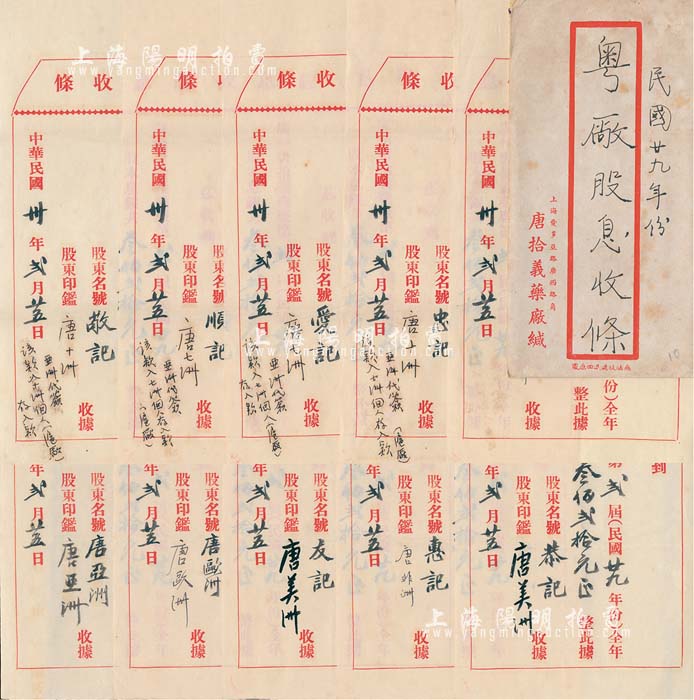 上海陽明拍賣
www.yangmingauction.com
民國廿九年份
粵廠股息收條
上海愛多亞路廣西路角
唐拾義藥廠緘
10
收條
中華民國 卅 年 弍 月 廿五 日
整此據
份)全年
收條
中華民國 卅 年 弍 月 廿五 日
股東名號 忠記
股東印鑑 唐十洲
收據
亞洲代簽
該款入十洲個人存入款
(滬廠)
收條
中華民國 卅 年 弍 月 廿五 日
股東名號 愛記
股東印鑑
收據
亞洲代簽
收條
中華民國 卅 年 弍 月 廿五 日
股東名號 順記
股東印鑑 唐七洲
收據
亞洲代簽
該款入七洲個人存入款
(滬廠)
收條
中華民國 卅 年 弍 月 廿五 日
股東名號 敬記
股東印鑑 唐十洲
收據
亞洲代簽
該款入十洲個人(滬廠)
存入款
到
第 弍 屆(民國 廿九 年份)全年
叁佰弍拾元正
整此據
股東名號 恭記
股東印鑑 唐美洲
收據
年 弍 月 廿五 日
股東名號 惠記
股東印鑑 唐非洲
收據
年 弍 月 廿五 日
股東名號 友記
股東印鑑 唐美洲
收據
年 弍 月 廿五 日
股東名號 唐歐洲
股東印鑑 唐歐洲
收據
年 弍 月 廿五 日
股東名號 唐亞洲
股東印鑑 唐亞洲
收據
年 弍 月 廿五 日
上海陽明拍賣
www.yangmingauction.com